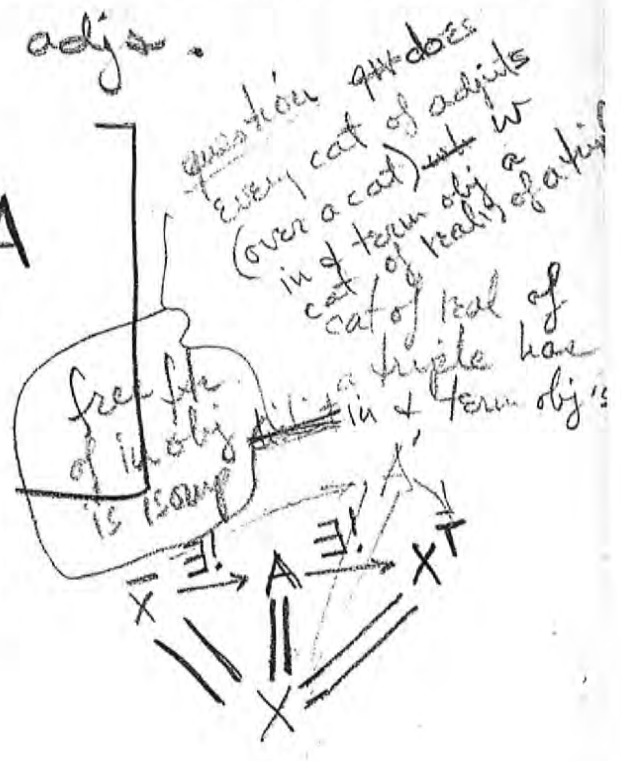 adjs.
question does
every cat of adjnts
(over a cat) w
in & term obj a
cat of realis of a
cat of real of
a triple has
in & term obj's
A
free ftr
of in obj
is isomp
A'
X̄ ∃! A ∃! X^T
X